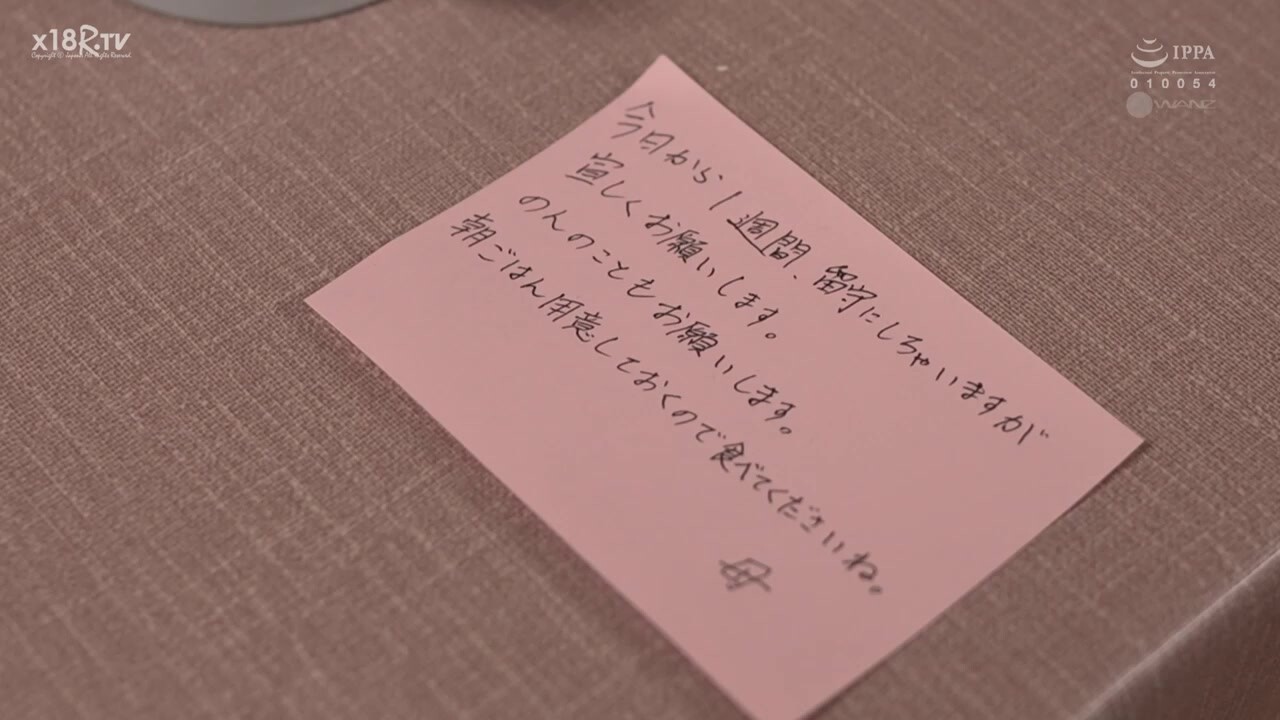 x18R.TV
IPPA
010054
WANZ
今日から1週間、留守にしちゃいますが
宜しくお願いします。
のんのこともお願いします。
朝ごはん用意しておくので食べてくださいね。
母